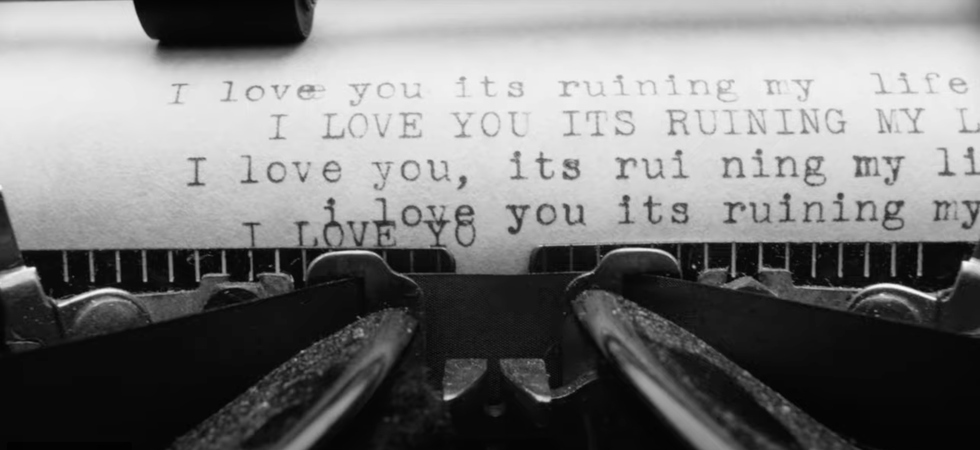 I love you its ruining my life
I LOVE YOU ITS RUINING MY L
I love you, its rui ning my li
i love you its ruining my
I LOVE YO